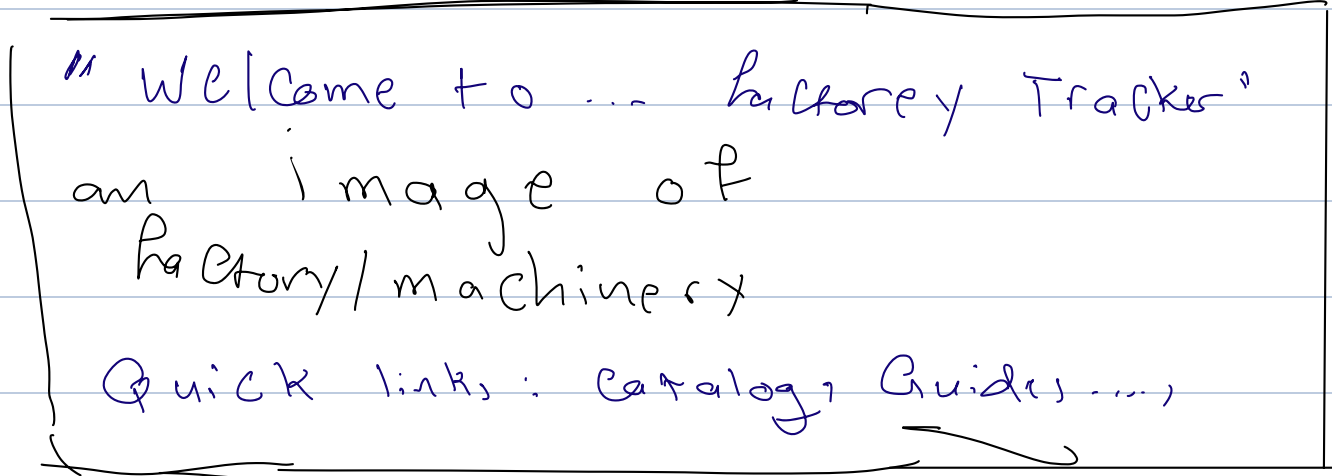 "Welcome to ... factorey Tracker"
an image of
factory/machinery
Quick links: catalog, Guides....,